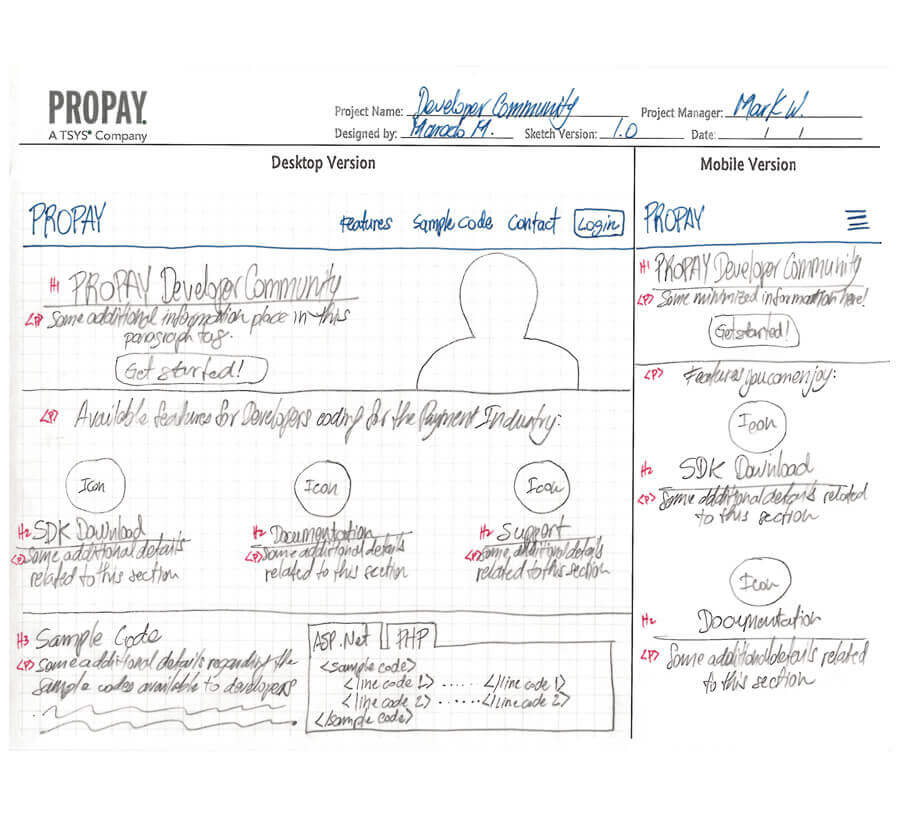 PROPAY.
A TSYS® Company
Project Name: Developer Community
Project Manager: Mark W.
Designed by: M.
Sketch Version: 1.0
Date: / /
Desktop Version
PROPAY
Features Sample Code Contact Login
H1 PROPAY Developer Community
<P> Some additional information place in this
paragraph tag.
Get started!
<P> Available features for Developers coding for the Payment Industry:
Icon
H2 SDK Download
<P> Some additional details
related to this section
Icon
H2 Documentation
<P> Some additional details
related to this section
Icon
H2 Support
<P> Some additional details
related to this section
H3 Sample Code
<P> Some additional details regarding the
sample codes available to developers
ASP.Net PHP
<sample code>
<line code 1> ..... </line code 1>
<line code 2> ...... </line code 2>
</sample code>
Mobile Version
PROPAY
H1 PROPAY Developer Community
<P> Some minimized information here!
Get started!
<P> Features you can enjoy:
Icon
H2 SDK Download
<P> Some additional details related
to this section
Icon
H2 Documentation
<P> Some additional details related
to this section